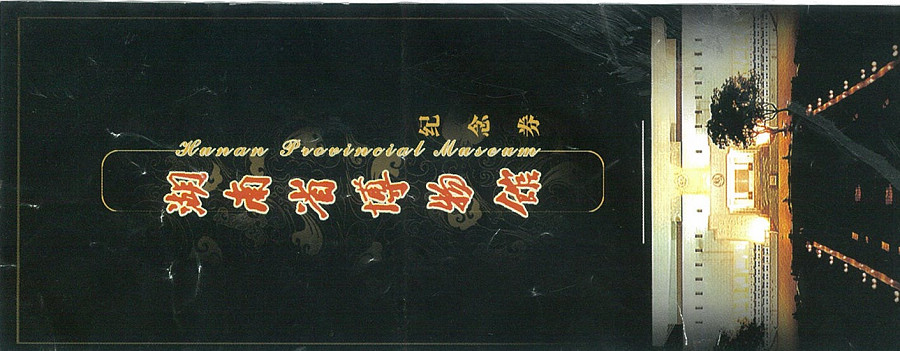 纪念券
Hunan Provincial Museum
湖南省博物馆